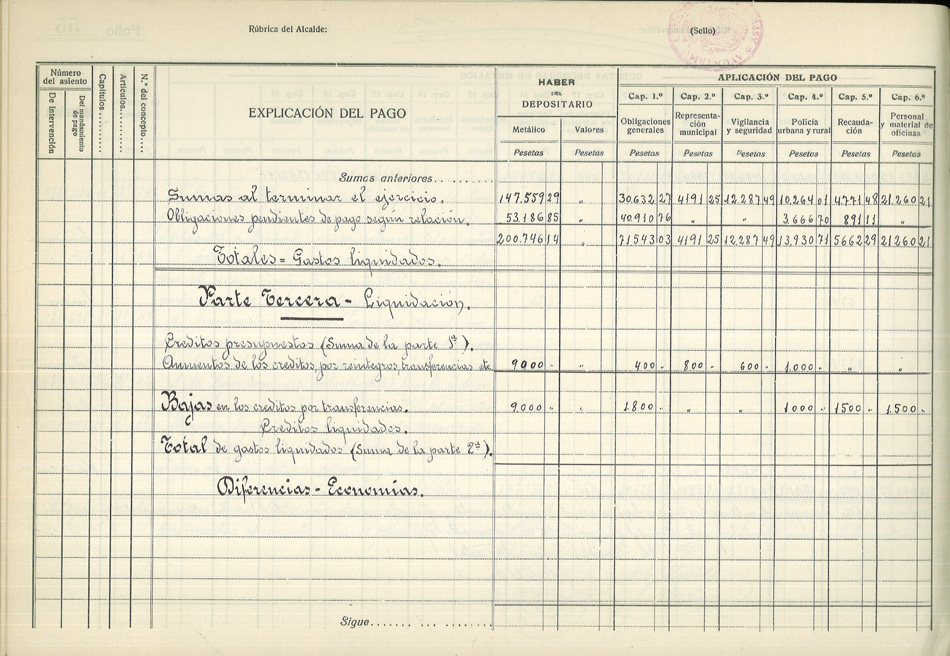 Rúbrica del Alcalde:
(Sello)
Número del asiento
De Intervención
Del mandamiento de pago
Capítulos
Artículos
N.º del concepto
EXPLICACIÓN DEL PAGO
HABER
DEL
DEPOSITARIO
Metálico Valores
Pesetas Pesetas
APLICACIÓN DEL PAGO
Cap. 1.º Cap. 2.º Cap. 3.º Cap. 4.º Cap. 5.º Cap. 6.º
Obligaciones generales
Representación municipal
Vigilancia y seguridad
Policía urbana y rural
Recaudación
Personal y material de oficinas
Pesetas Pesetas Pesetas Pesetas Pesetas Pesetas
Sumas anteriores
Sumas al terminar el ejercicio. 147.559 29 " 30.632 27 4191 25 12.287 49 10.264 01 4.771 48 21.260 21
Obligaciones pendientes de pago según relación. 53.186 85 " 40.910 76 " " 3.666 70 891 11 "
200.746 14 " 71543 03 4191 25 12.287 49 13.930 71 5662 29 21260 21
Totales = Gastos liquidados.
Parte Tercera - Liquidación.
Creditos presupuestos (Suma de la parte 1ª).
Aumentos de los creditos, por reintegros, transferencias etc. 9000 - " 400 - 800 - 600 - 1.000 - " "
Bajas en los creditos por transferencias. 9.000 " " 1800 - " " 1000 - 1500 - 1.500 -
Creditos liquidados.
Total de gastos liquidados (Suma de la parte 2ª).
Diferencias - Economías.
Sigue